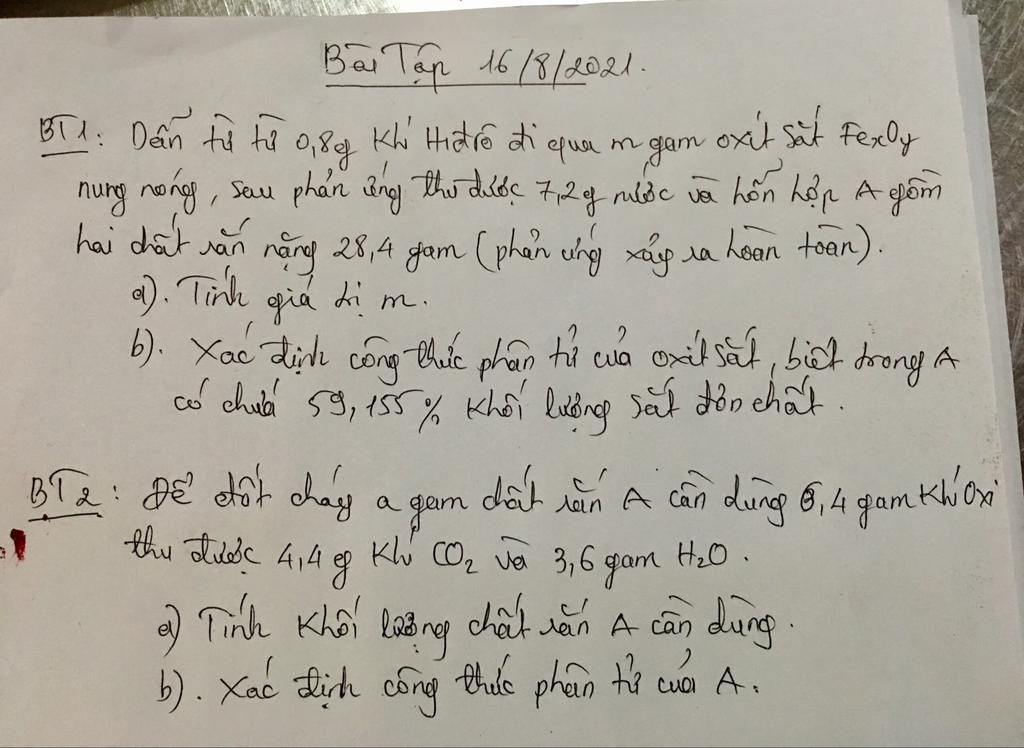 Bài Tập 16/8/2021.
BT1: Dẫn từ từ 0,8g Khí Hiđrô đi qua m gam oxít sắt FexOy
nung nóng, sau phản ứng thu được 7,2g nước và hỗn hợp A gồm
hai chất rắn nặng 28,4 gam (phản ứng xảy ra hoàn toàn).
a). Tính giá trị m.
b). Xác định công thức phân tử của oxít sắt, biết trong A
có chứa 59,155% Khối lượng sắt đơn chất.
BT2: Để đốt cháy a gam chất rắn A cần dùng 6,4 gam Khí Oxi
thu được 4,4g Khí CO₂ và 3,6 gam H₂O.
a) Tính Khối lượng chất rắn A cần dùng.
b). Xác định công thức phân tử của A.